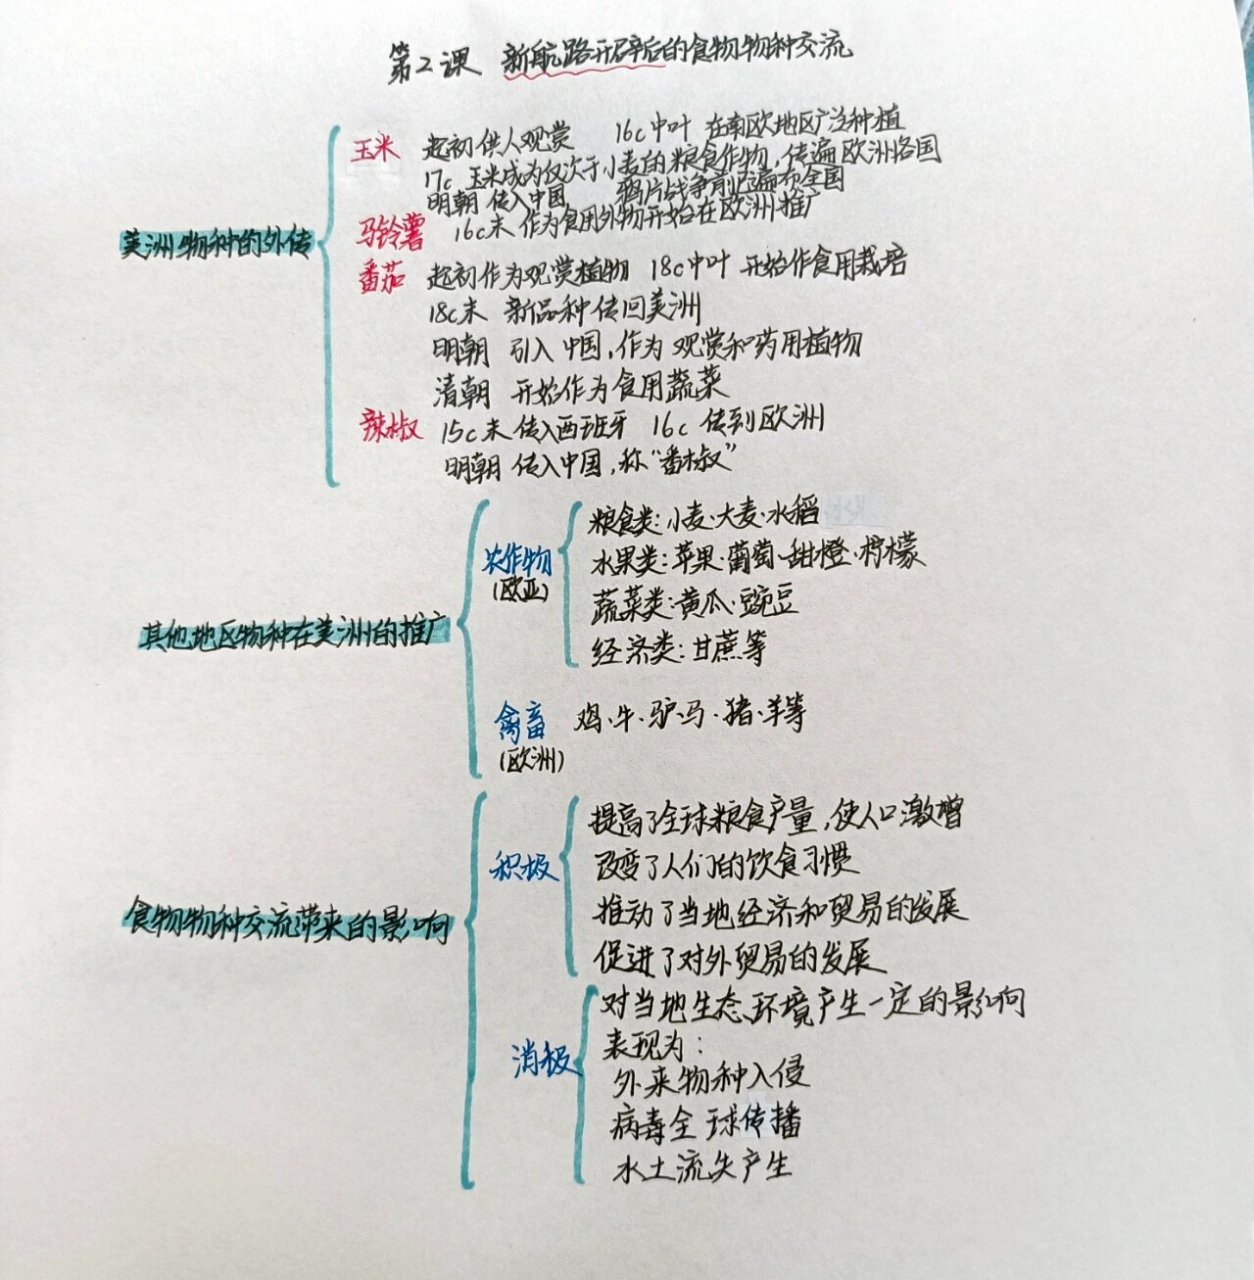 第2课 新航路开辟后的食物物种交流
美洲物种的外传
玉米 起初供人观赏 16c中叶 在南欧地区广泛种植
17c 玉米成为仅次于小麦的粮食作物，传遍欧洲各国
明朝 传入中国 鸦片战争前已遍布全国
马铃薯 16c末 作为食用外物开始在欧洲推广
番茄 起初作为观赏植物 18c中叶 开始作食用栽培
18c末 新品种传回美洲
明朝 引入中国，作为观赏和药用植物
清朝 开始作为食用蔬菜
辣椒 15c末传入西班牙 16c 传到欧洲
明朝 传入中国，称“番椒”
其他地区物种在美洲的推广
农作物
(欧亚)
粮食类：小麦·大麦·水稻
水果类：苹果·葡萄·甜橙·柠檬
蔬菜类：黄瓜·豌豆
经济类：甘蔗等
禽畜 鸡·牛·驴·马·猪·羊等
(欧洲)
食物物种交流带来的影响
积极
提高了全球粮食产量，使人口激增
改变了人们的饮食习惯
推动了当地经济和贸易的发展
促进了对外贸易的发展
消极
对当地生态环境产生一定的影响
表现为：
外来物种入侵
病毒全球传播
水土流失产生